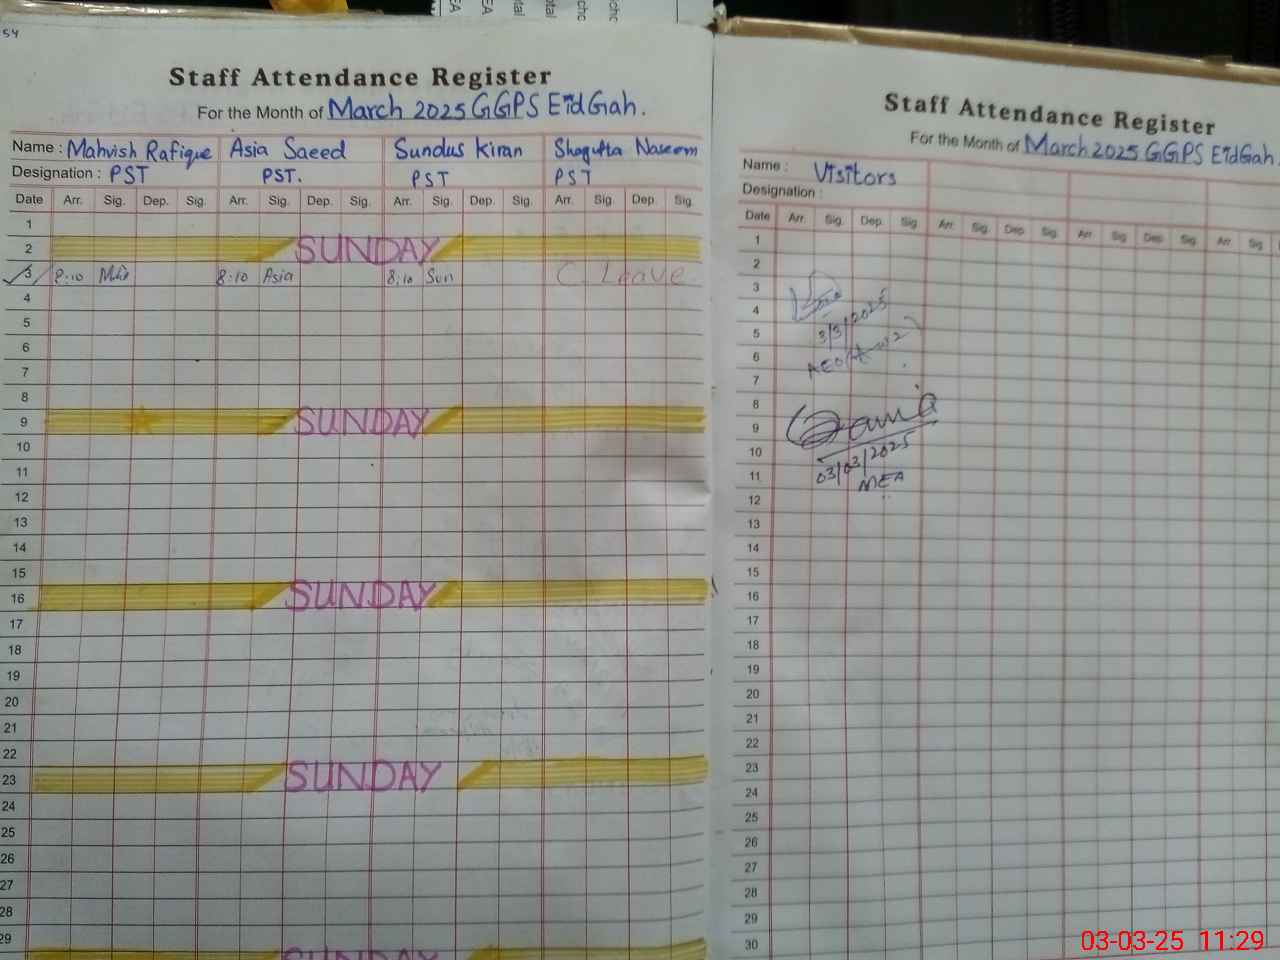 54
Staff Attendance Register
For the Month of March 2025 GGPS EidGah.
Name : Mahvish Rafique Asia Saeed Sundus Kiran Shagufta Naseem
Designation : PST PST. PST PST
Date Arr. Sig. Dep. Sig. Arr. Sig. Dep. Sig. Arr. Sig. Dep. Sig. Arr. Sig. Dep. Sig.
1
2 SUNDAY
3 8:10 8:10 Asia 8:10 Sun C. Leave
4
5
6
7
8
9 SUNDAY
10
11
12
13
14
15
16 SUNDAY
17
18
19
20
21
22
23 SUNDAY
24
25
26
27
28
29
SUNDAY
Staff Attendance Register
For the Month of March 2025 GGPS EidGah.
Name : Visitors
Designation :
Date Arr. Sig. Dep. Sig. Arr. Sig. Dep. Sig. Arr. Sig. Dep. Sig. Arr. Sig.
1
2
3
4
5 3/3/2025
6 AEO
7
8
9 Sania
10 03/03/2025
11 MEA
12
13
14
15
16
17
18
19
20
21
22
23
24
25
26
27
28
29
30
03-03-25 11:29